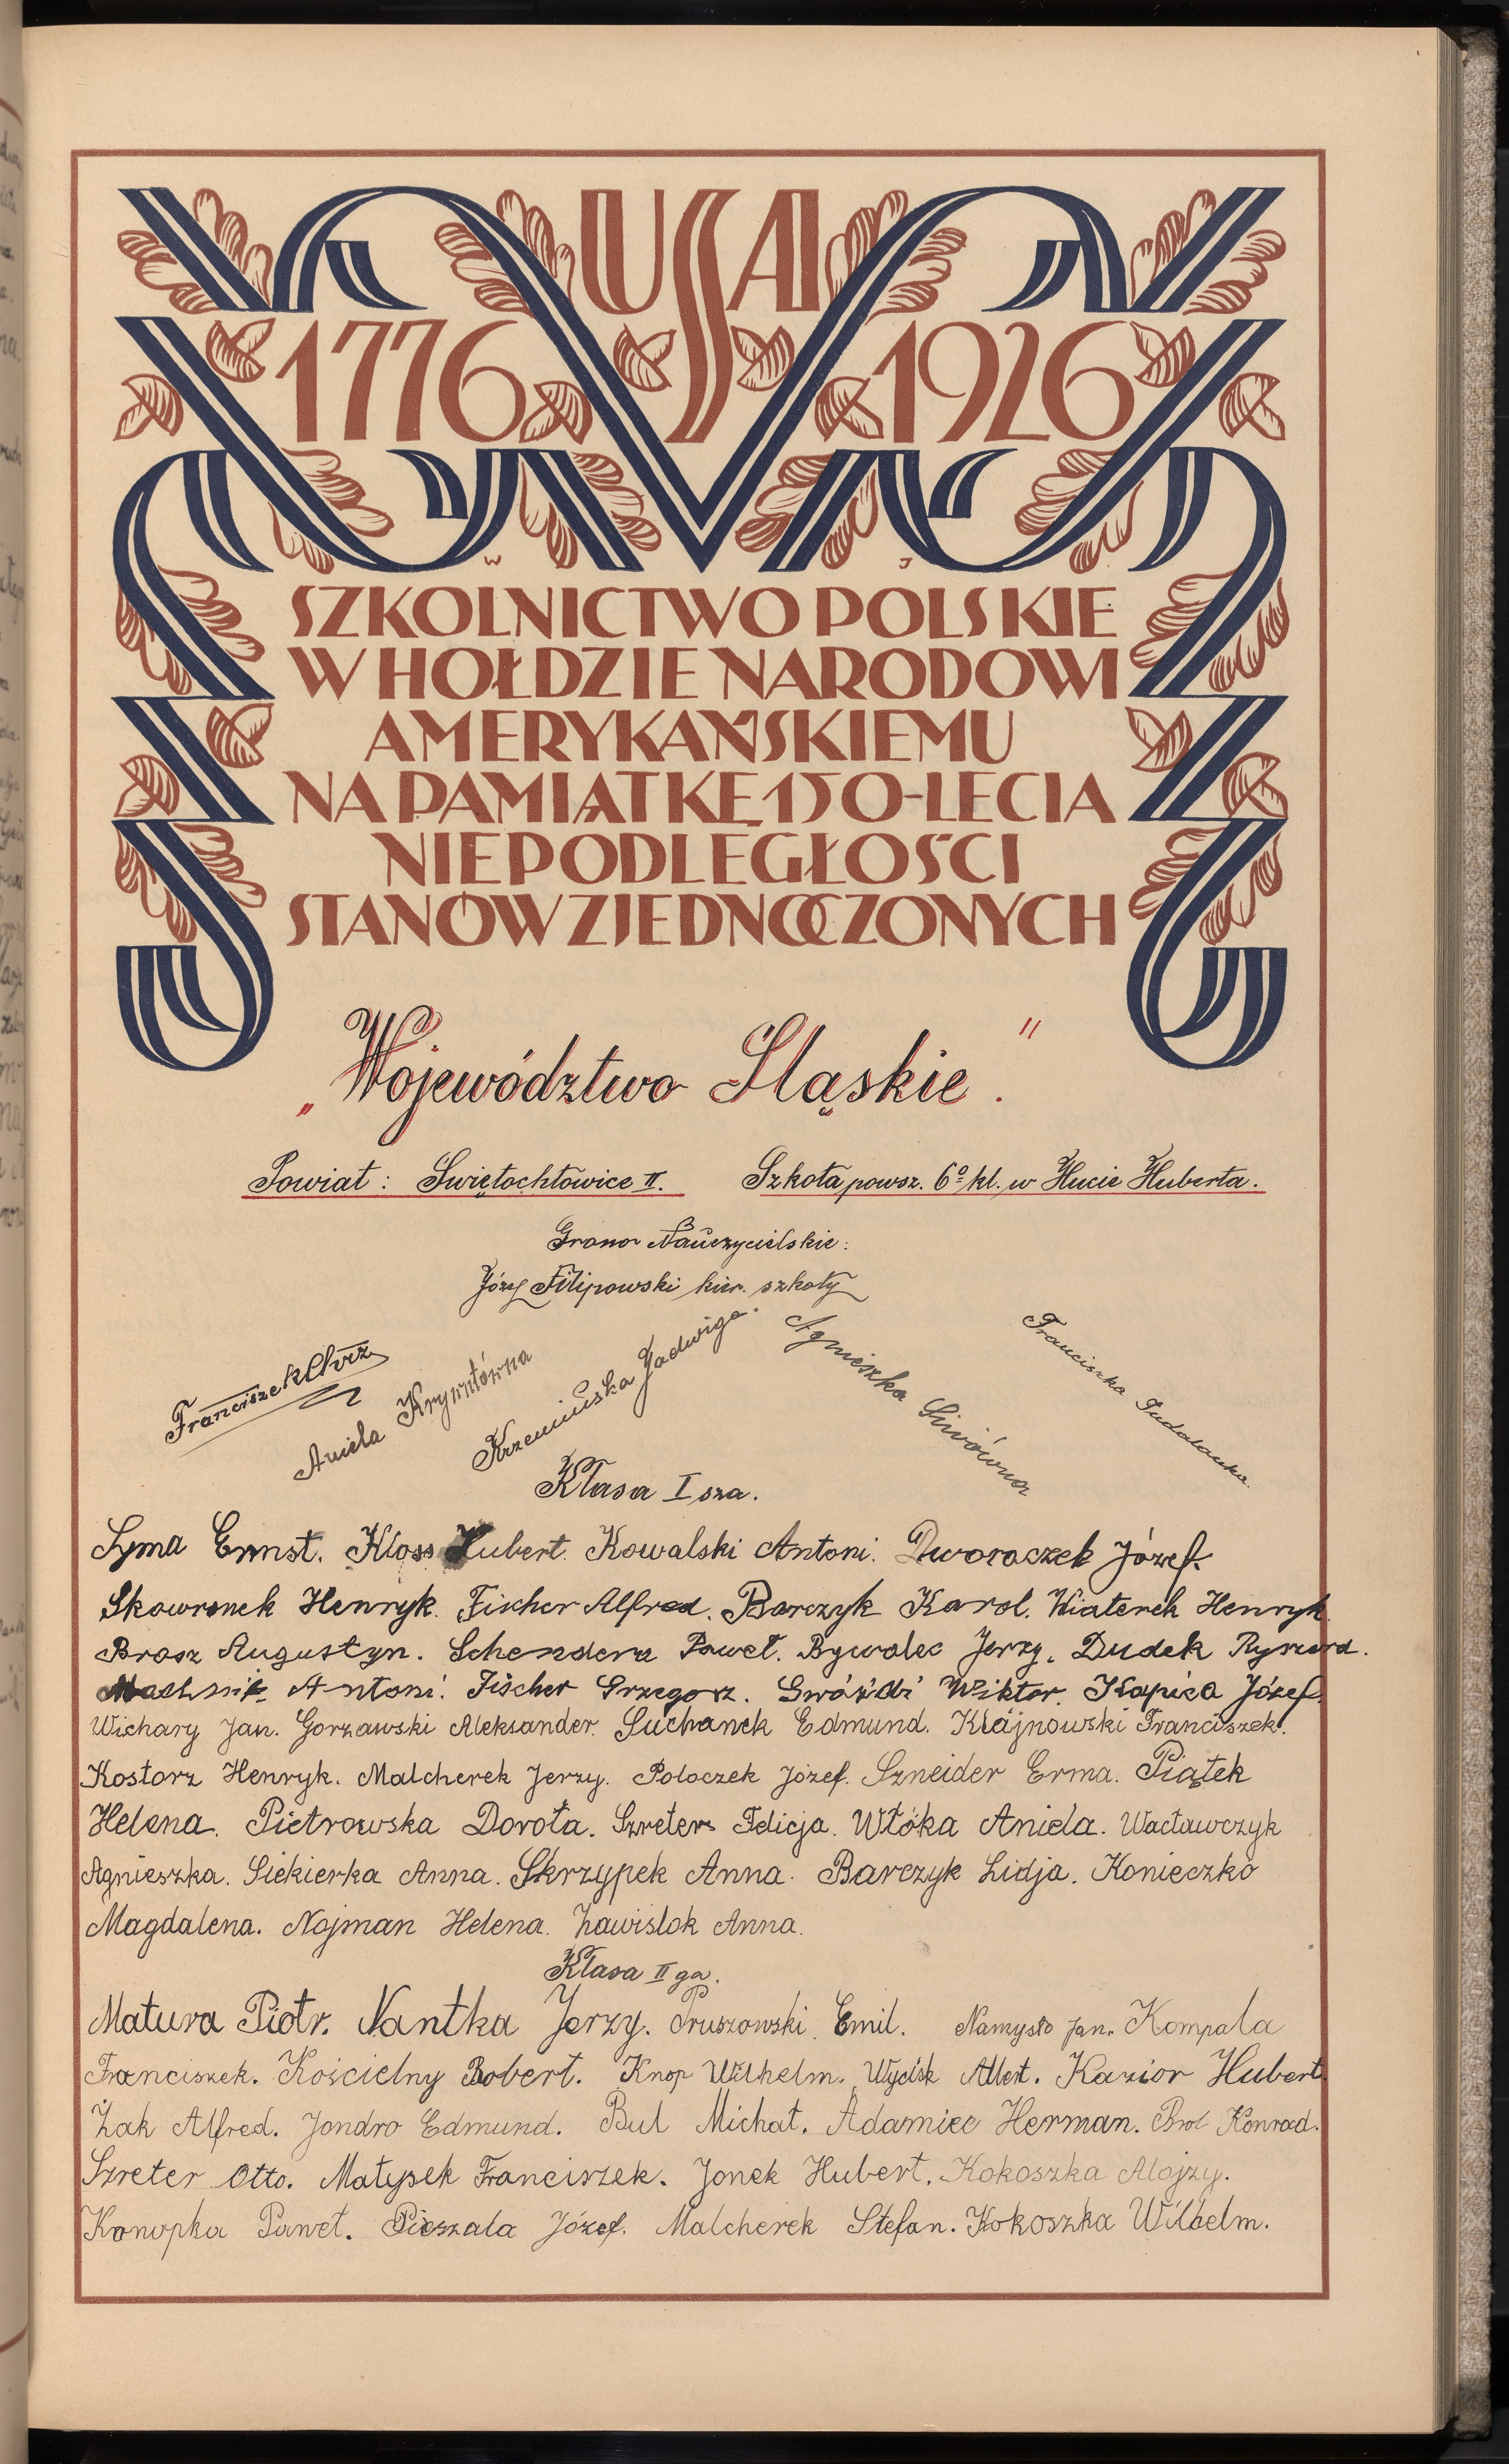 USA
1776 1926
W J
SZKOLNICTWO POLSKIE
W HOŁDZIE NARODOWI
AMERYKAŃSKIEMU
NA PAMIĄTKĘ 150-LECIA
NIEPODLEGŁOŚCI
STANÓW ZJEDNOCZONYCH
„Województwo Śląskie."
Powiat: Świętochłowice II. Szkoła powsz. 6º kl. w Hucie Huberta.
Grono Nauczycielskie:
Józef Filipowski kier. szkoły
Franciszek
Aniela
Krzemińska Jadwiga.
Agnieszka Siwówna
Franciszka
Klasa I sza.
Syma Ernst. Kloss Hubert. Kowalski Antoni. Dworaczek Józef.
Skowronek Henryk. Fischer Alfred. Barczyk Karol. Wiaterek Henryk.
Brasz Augustyn. Schendera Paweł. Bywalec Jerzy. Dudek Ryszard.
Machnik Antoni. Fischer Grzegorz. Gwóździ Wiktor. Kapica Józef.
Wichary Jan. Gorzawski Aleksander. Suchanek Edmund. Krajnowski Franciszek.
Kostorz Henryk. Malcherek Jerzy. Poloczek Józef. Szneider Erma. Piątek
Helena. Pietrowska Dorota. Szreter Felicja. Wtóka Aniela. Wacławczyk
Agnieszka. Siekierka Anna. Skrzypek Anna. Barczyk Lidja. Konieczko
Magdalena. Nojman Helena. Zawislok Anna.
Klasa II ga.
Matura Piotr. Nantka Jerzy. Pruszowski Emil. Namysło Jan. Kompala
Franciszek. Kościelny Robert. Knop Wilhelm. Wycisk Albert. Kazior Hubert.
Żak Alfred. Jondro Edmund. Bul Michał. Adamiec Herman. Brol Konrad.
Szreter Otto. Matysek Franciszek. Jonek Hubert. Kokoszka Alojzy.
Konopka Paweł. Pieszala Józef. Malcherek Stefan. Kokoszka Wilhelm.